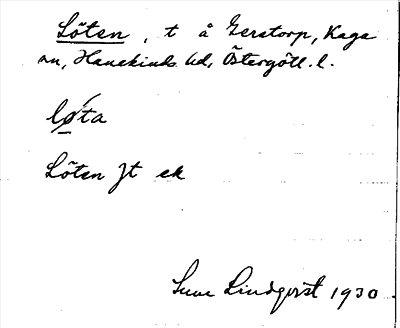 Löten, t å Gerstorp, Kaga
sn, Hanekinds hd, Östergötl. l.
lǿ̱ta
Löten Jt ek
Sune Lindqvist 1930